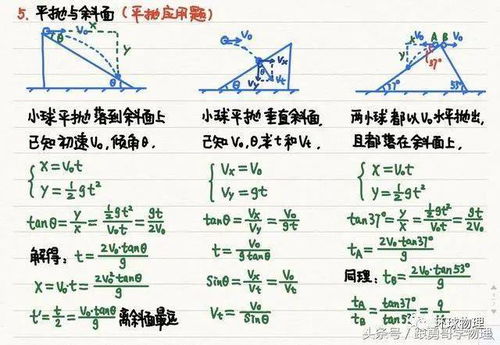 5. 平抛与斜面(平抛应用题)
X V₀ θ Y θ
V₀ Vx θ Vy Vt θ
V₀ A B V₀ Y 37° 37° 53°
小球平抛落到斜面上
已知初速V₀,倾角θ.
{ X=V₀t
{ Y=½gt²
tanθ=Y/X=½gt²/V₀t=gt/2V₀
解得:t=2V₀·tanθ/g
X=V₀t=2V₀²tanθ/g
t'=t/2=V₀·tanθ/g 离斜面最远
小球平抛垂直斜面.
已知V₀,θ,求t和Vt.
{ Vx=V₀
{ Vy=gt
tanθ=Vx/Vy=V₀/gt
t=V₀/gtanθ
Sinθ=Vx/Vt=V₀/Vt
Vt=V₀/Sinθ
两小球都以V₀水平抛出,
且都落在斜面上.
{ X=V₀t
{ Y=½gt²
tan37°=Y/X=½gt²/V₀t=gt/2V₀
tA=2V₀·tan37°/g
同理:tB=2V₀·tan53°/g
tA/tB=tan37°/tan5?=9/
环球物理
头条号/跟勇哥学物理